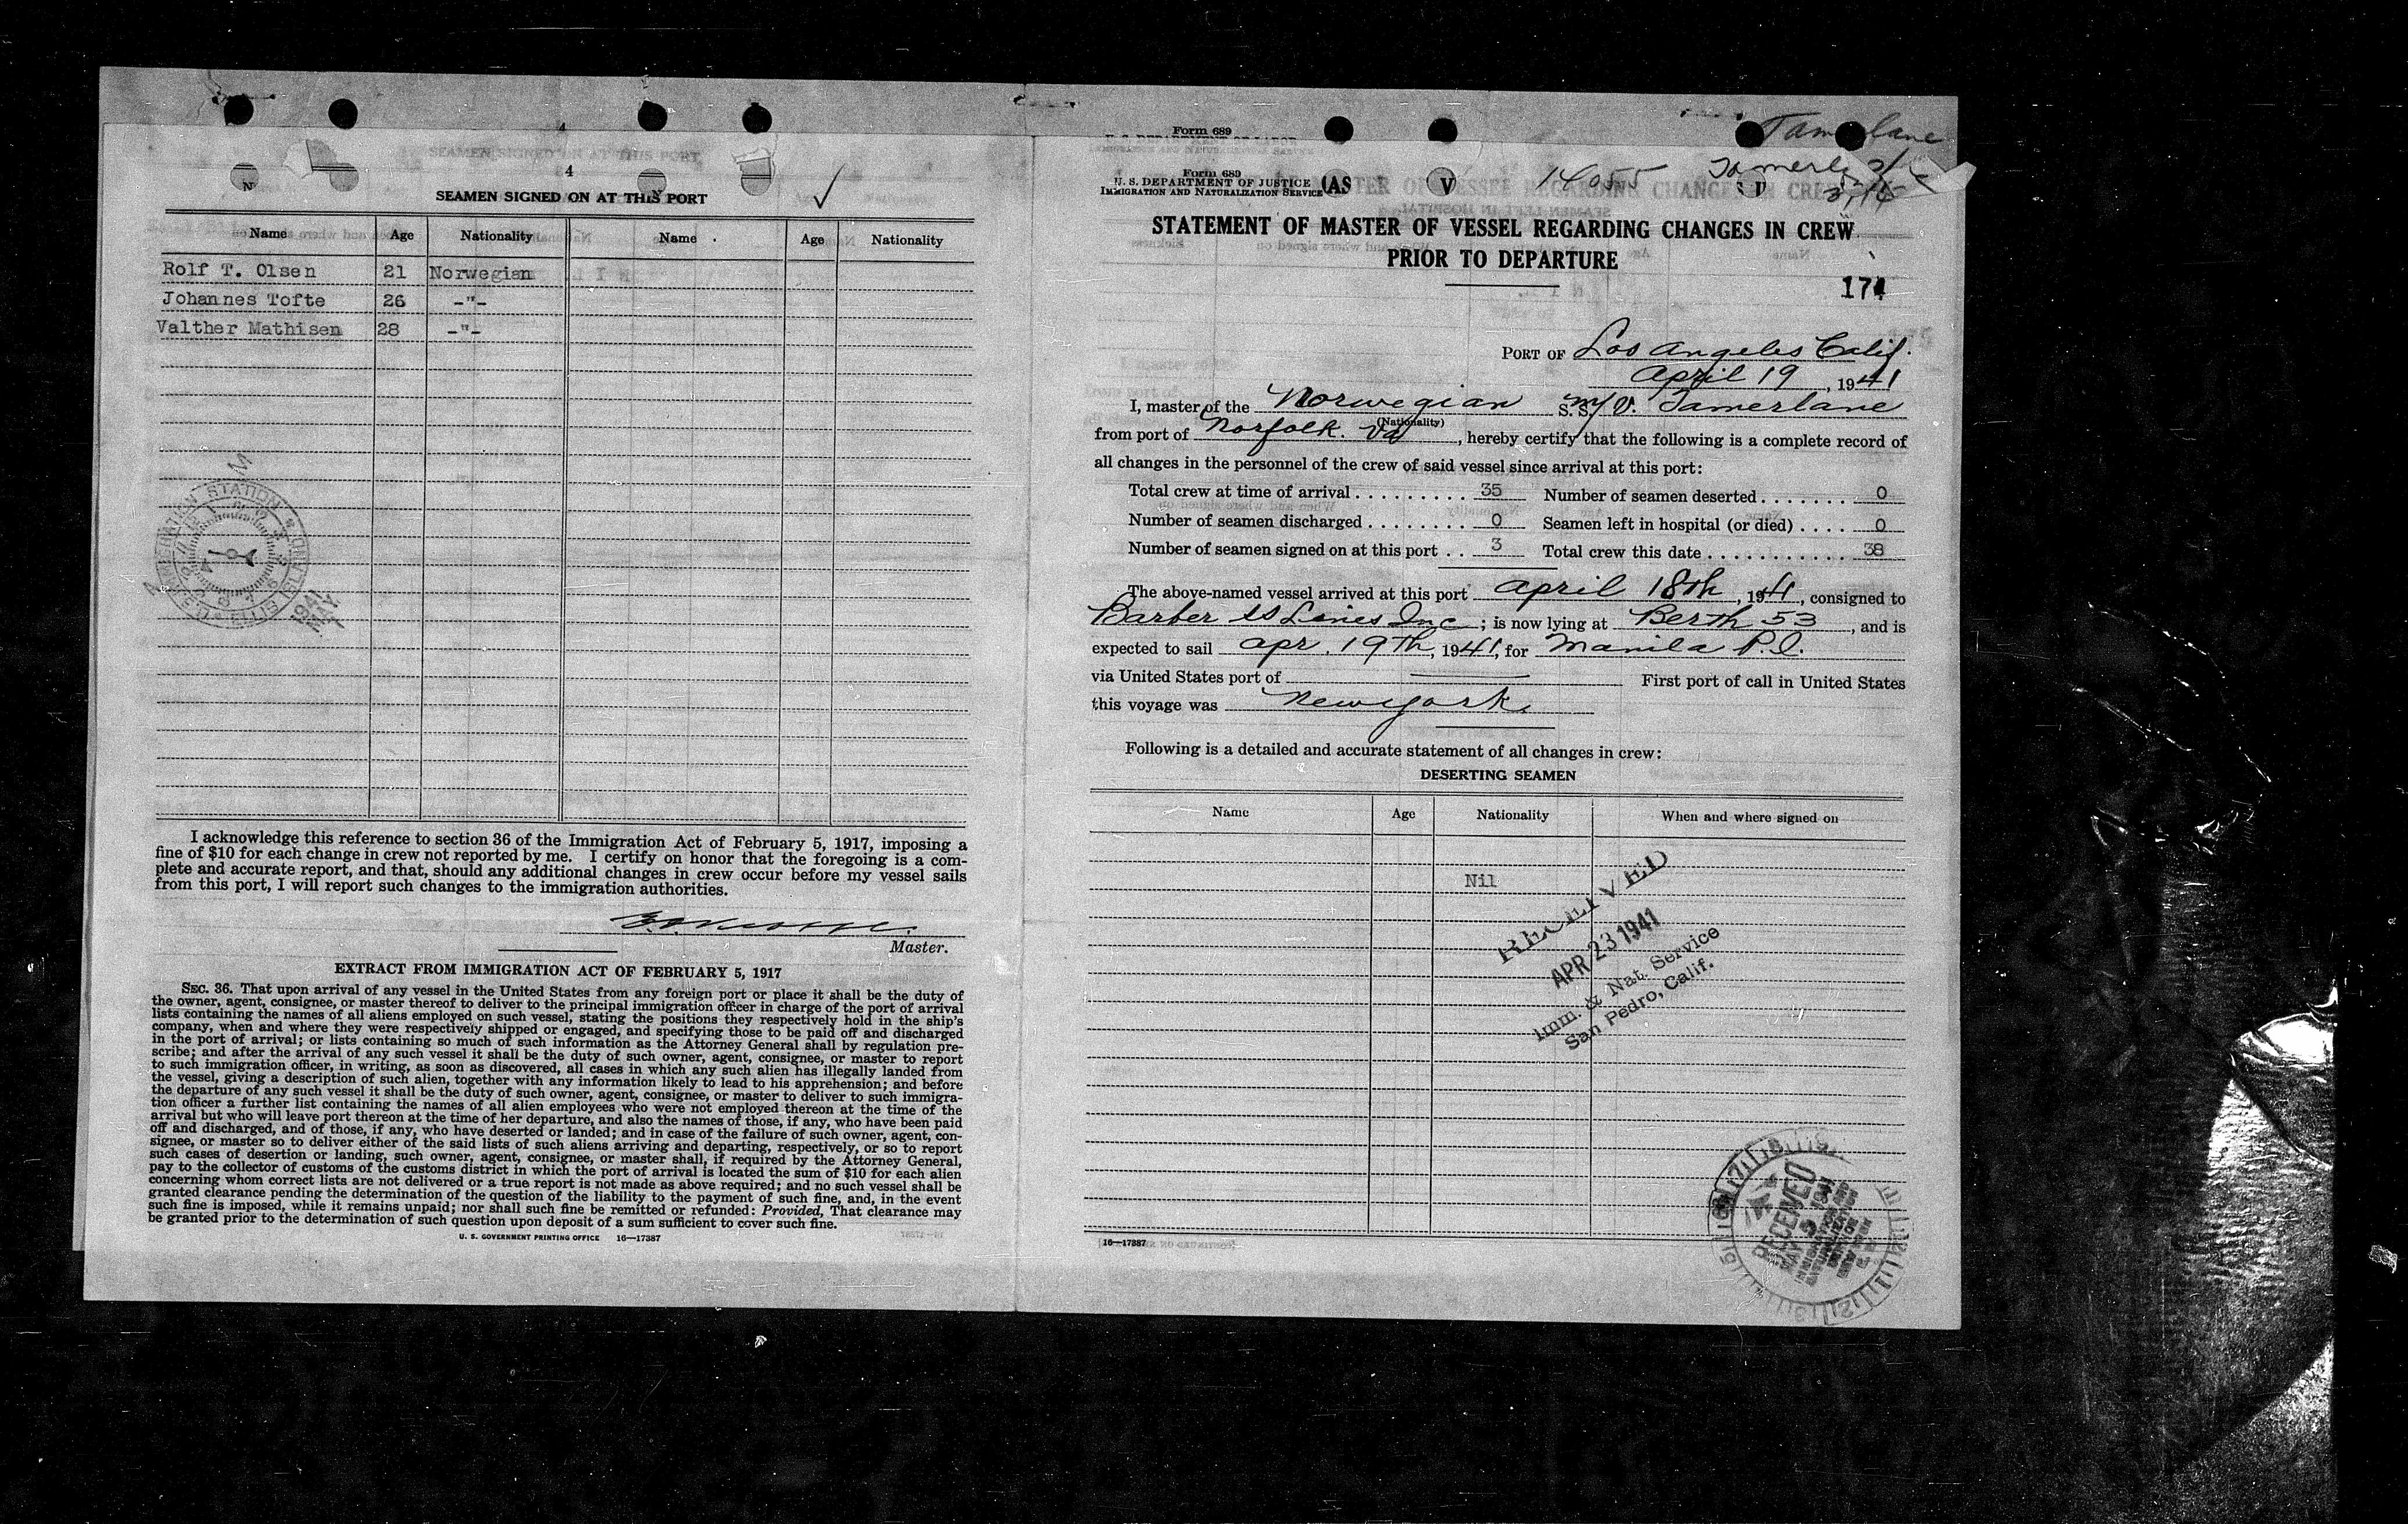 4
SEAMEN SIGNED ON AT THIS PORT
Name Age Nationality Name Age Nationality
Rolf T. Olsen 21 Norwegian
Johannes Tofte 26 -"-
Valther Mathisen 28 -"-
I acknowledge this reference to section 36 of the Immigration Act of February 5, 1917, imposing a
fine of $10 for each change in crew not reported by me. I certify on honor that the foregoing is a com-
plete and accurate report, and that, should any additional changes in crew occur before my vessel sails
from this port, I will report such changes to the immigration authorities.
Master.
EXTRACT FROM IMMIGRATION ACT OF FEBRUARY 5, 1917
SEC. 36. That upon arrival of any vessel in the United States from any foreign port or place it shall be the duty of
the owner, agent, consignee, or master thereof to deliver to the principal immigration officer in charge of the port of arrival
lists containing the names of all aliens employed on such vessel, stating the positions they respectively hold in the ship's
company, when and where they were respectively shipped or engaged, and specifying those to be paid off and discharged
in the port of arrival; or lists containing so much of such information as the Attorney General shall by regulation pre-
scribe; and after the arrival of any such vessel it shall be the duty of such owner, agent, consignee, or master to report
to such immigration officer, in writing, as soon as discovered, all cases in which any such alien has illegally landed from
the vessel, giving a description of such alien, together with any information likely to lead to his apprehension; and before
the departure of any such vessel it shall be the duty of such owner, agent, consignee, or master to deliver to such immigra-
tion officer a further list containing the names of all alien employees who were not employed thereon at the time of the
arrival but who will leave port thereon at the time of her departure, and also the names of those, if any, who have been paid
off and discharged, and of those, if any, who have deserted or landed; and in case of the failure of such owner, agent, con-
signee, or master so to deliver either of the said lists of such aliens arriving and departing, respectively, or so to report
such cases of desertion or landing, such owner, agent, consignee, or master shall, if required by the Attorney General,
pay to the collector of customs of the customs district in which the port of arrival is located the sum of $10 for each alien
concerning whom correct lists are not delivered or a true report is not made as above required; and no such vessel shall be
granted clearance pending the determination of the question of the liability to the payment of such fine, and, in the event
such fine is imposed, while it remains unpaid; nor shall such fine be remitted or refunded: Provided, That clearance may
be granted prior to the determination of such question upon deposit of a sum sufficient to cover such fine.
U. S. GOVERNMENT PRINTING OFFICE 16—17387
Form 689
Tamerlane
Form 689
U. S. DEPARTMENT OF JUSTICE
IMMIGRATION AND NATURALIZATION SERVICE
14055
STATEMENT OF MASTER OF VESSEL REGARDING CHANGES IN CREW
PRIOR TO DEPARTURE
174
PORT OF Los Angeles Calif.
April 19, 1941
I, master of the Norwegian S. S. M/V. Tamerlane
(Nationality)
from port of Norfolk. Va, hereby certify that the following is a complete record of
all changes in the personnel of the crew of said vessel since arrival at this port:
Total crew at time of arrival 35 Number of seamen deserted 0
Number of seamen discharged 0 Seamen left in hospital (or died) 0
Number of seamen signed on at this port 3 Total crew this date 38
The above-named vessel arrived at this port April 18th, 1941, consigned to
Barber SS Lines Inc; is now lying at Berth 53, and is
expected to sail Apr. 19th, 1941, for Manila P.I.
via United States port of First port of call in United States
this voyage was New York
Following is a detailed and accurate statement of all changes in crew:
DESERTING SEAMEN
Name Age Nationality When and where signed on
Nil
RECEIVED
APR 23 1941
Imm. & Nat. Service
San Pedro, Calif.
RECEIVED
MAY 5 1941
16—17387